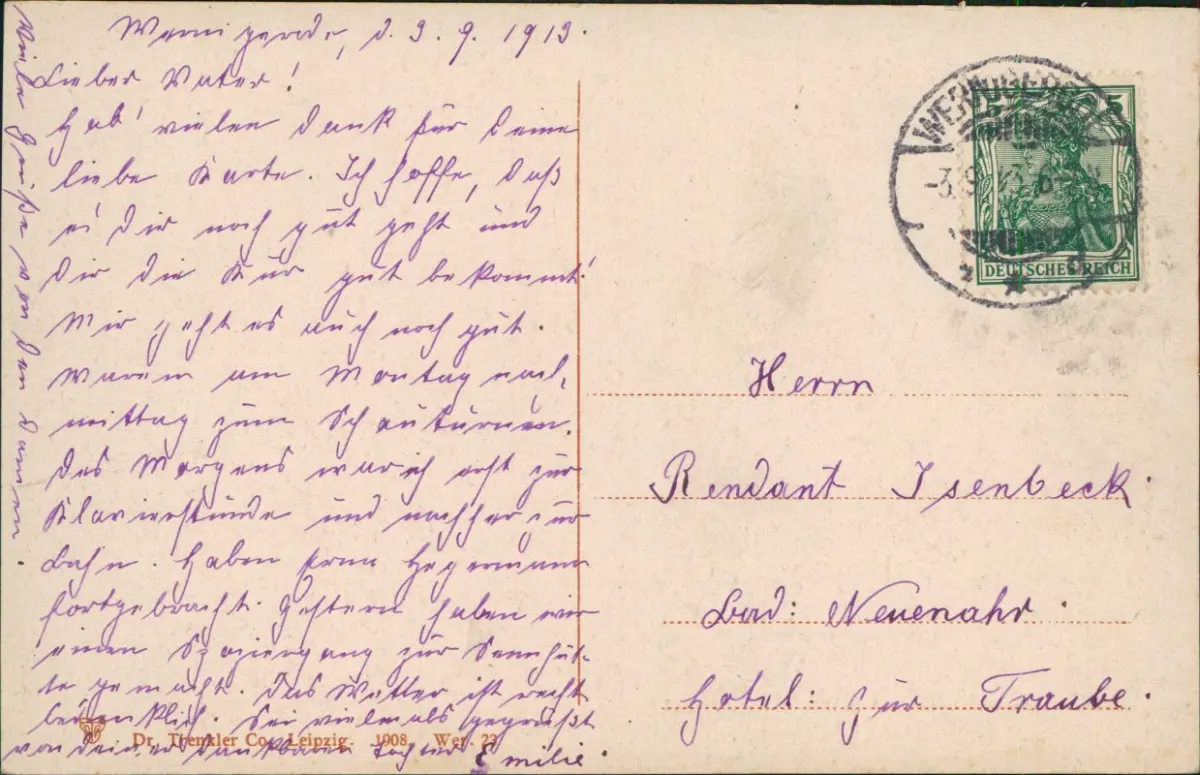 Wernigerode, d. 3. 9. 1913.
Lieber Vater!
Hab' vielen Dank für Deine
liebe Karte. Ich hoffe, daß
es Dir noch gut geht und
Dir die Kur gut bekommt!
Mir geht es auch noch gut.
Waren am Montag nach-
mittag zum Schauturnen.
Des Morgens war ich erst zur
Klavierstunde und nachher zur
Bahn. Haben Frau Hegermann
fortgebracht. Gestern haben wir
einen Spaziergang zur Sennhüt-
te gemacht. Das Wetter ist recht
bedenklich. Sei vielmals gegrüßt
von Deiner dankbaren Tochter Emilie.
Viele Grüße von den Damen.
Dr. Trenkler Co., Leipzig. 1908. Wer. 23
WERNIGERODE
-3.9.13. 6-7
DEUTSCHES REICH
5 5
Herrn
Rendant Isenbeck.
Bad: Neuenahr.
Hotel: zur Traube.